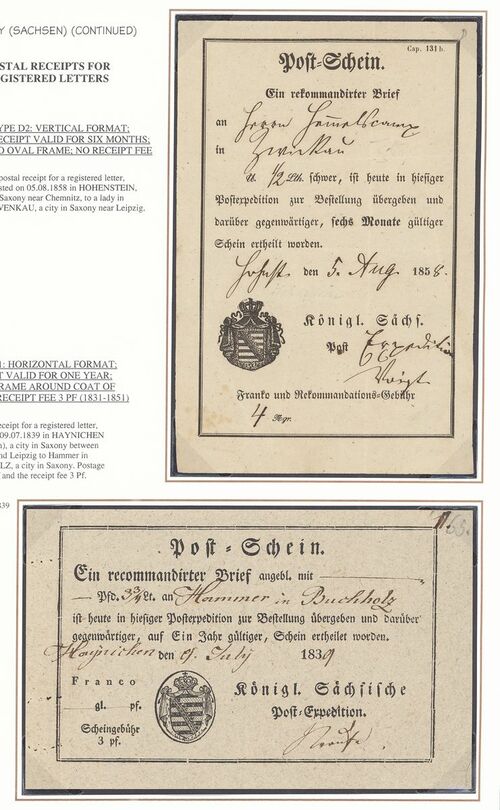 Y (SACHSEN) (CONTINUED)
STAL RECEIPTS FOR
EGISTERED LETTERS
YPE D2: VERTICAL FORMAT;
ECEIPT VALID FOR SIX MONTHS;
O OVAL FRAME; NO RECEIPT FEE
postal receipt for a registered letter,
sted on 05.08.1858 in HOHENSTEIN,
Saxony near Chemnitz, to a lady in
WENKAU, a city in Saxony near Leipzig.
Cap. 131 b.
Post-Schein.
Ein rekommandirter Brief
an Herrn
in Zwickau
1/2 Lth. schwer, ist heute in hiesiger
Posterpedition zur Bestellung übergeben und
darüber gegenwärtiger, sechs Monate gültiger
Schein ertheilt worden.
Hohnst. den 5. Aug. 1858.
Königl. Sächs.
Post Expedition
Voigt
Franko und Rekommandations-Gebühr
4 Ngr.
1: HORIZONTAL FORMAT;
T VALID FOR ONE YEAR;
RAME AROUND COAT OF
RECEIPT FEE 3 PF (1831-1851)
eceipt for a registered letter,
09.07.1839 in HAYNICHEN
n), a city in Saxony between
nd Leipzig to Hammer in
LZ, a city in Saxony. Postage
and the receipt fee 3 Pf.
839
Post-Schein.
Ein recommandirter Brief angebl. mit
Pfd. 3 3/4 Lt. an Hammer in Buchholz
ist heute in hiesiger Posterpedition zur Bestellung übergeben und darüber
gegenwärtiger, auf Ein Jahr gültiger, Schein ertheilet worden.
Haynichen den 9. July 1839
Franco
gl. pf.
Scheingebühr
3 pf.
Königl. Sächsische
Post-Expedition.